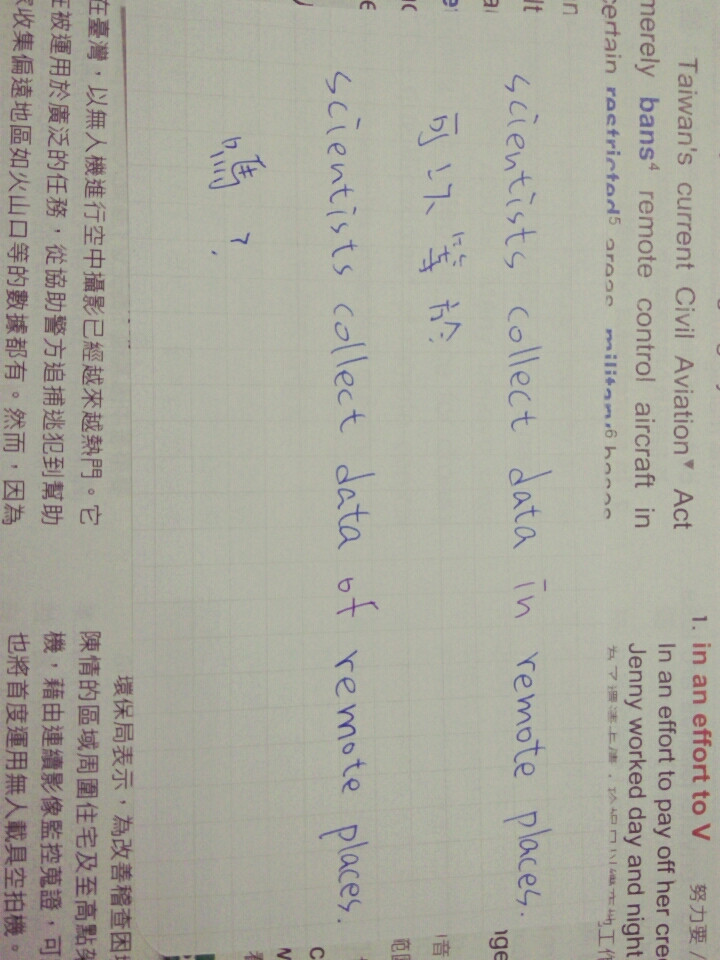 Taiwan's current Civil Aviation▼ Act
merely bans⁴ remote control aircraft in
certain restricted⁵ areas
1. in an effort to V 努力要
In an effort to pay off her
Jenny worked day and night
scientists collect data in remote places.
可以等於
scientists collect data of remote places.
嗎?
在臺灣,以無人機進行空中攝影已經越來越熱門。它
被運用於廣泛的任務,從協助警方追捕逃犯到幫助
收集偏遠地區如火山口等的數據都有。然而,因為
環保局表示,為改善稽查困
陳情的區域周圍住宅及至高點
機,藉由連續影像監控蒐證,可
也將首度運用無人載具空拍機。